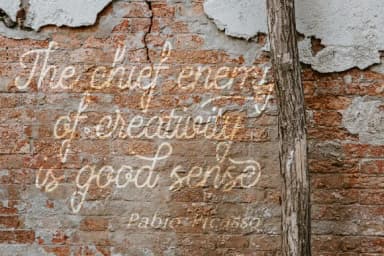 The chief enemy
of creativity
is good sense
Pablo Picasso